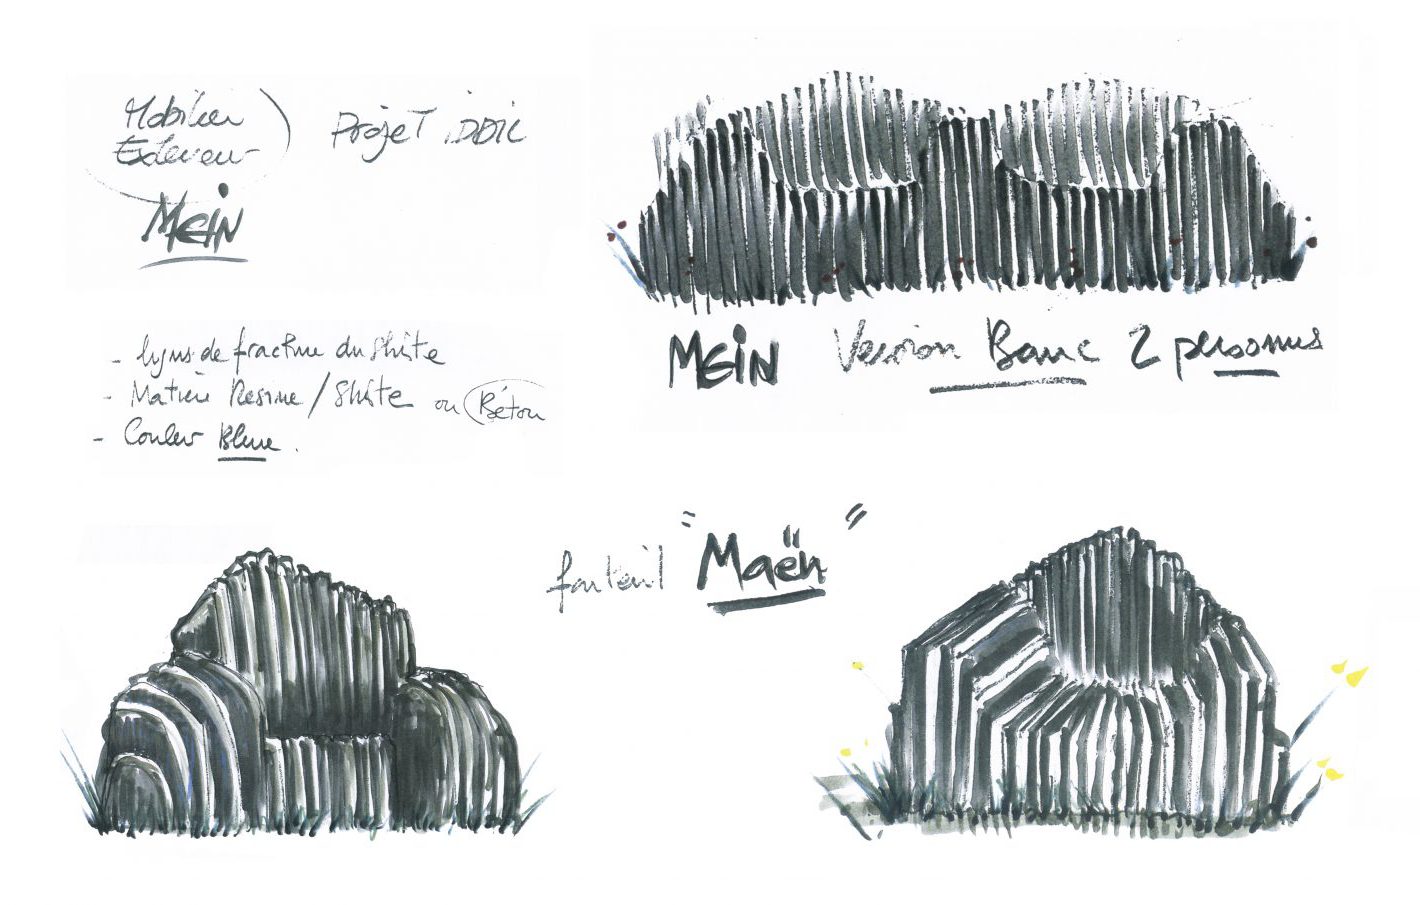 Mobilier
Exterieur
Projet
MEIN
- lignes de fracture du Shite
- Matière Resine / Shite ou Béton
- Couleur Bleue.
MEIN Version Banc 2 personnes
fauteuil "Maën"